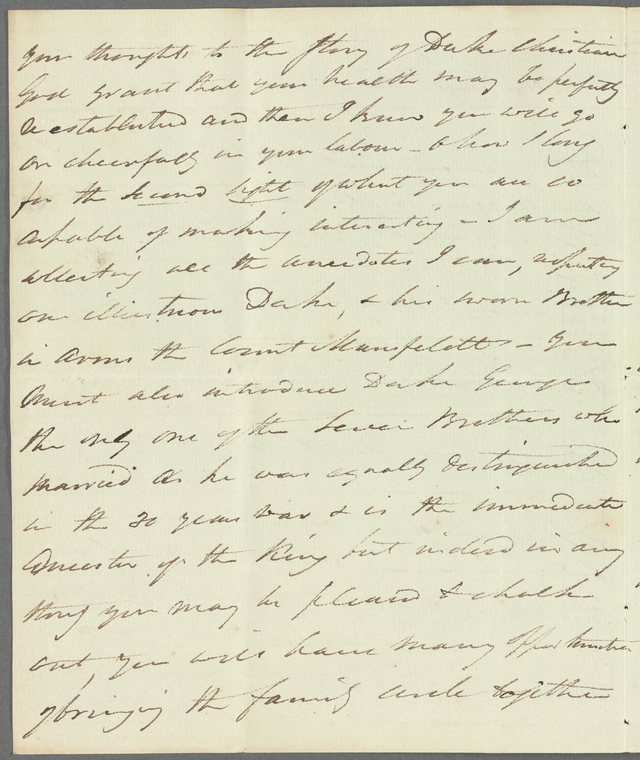 your thoughts to the story of Duke Christian
God grant that your health may be perfectly
re established and then I know you will go
on cheerfully in your labour - o how I long
for the second sight of what you are so
capable of making interesting - I am
collecting all the anecdotes I can, respecting
our illustrious Duke, & his sworn Brother
in Arms the Count Mansfeldt - You
must also introduce Duke George
the only one of the Seven Brothers who
married as he was equally distinguished
in the 30 years war & is the immediate
Ancestor of the King but indeed in any
thing you may be pleased to chalk
out, you will have many opportunities
of bringing the family circle together